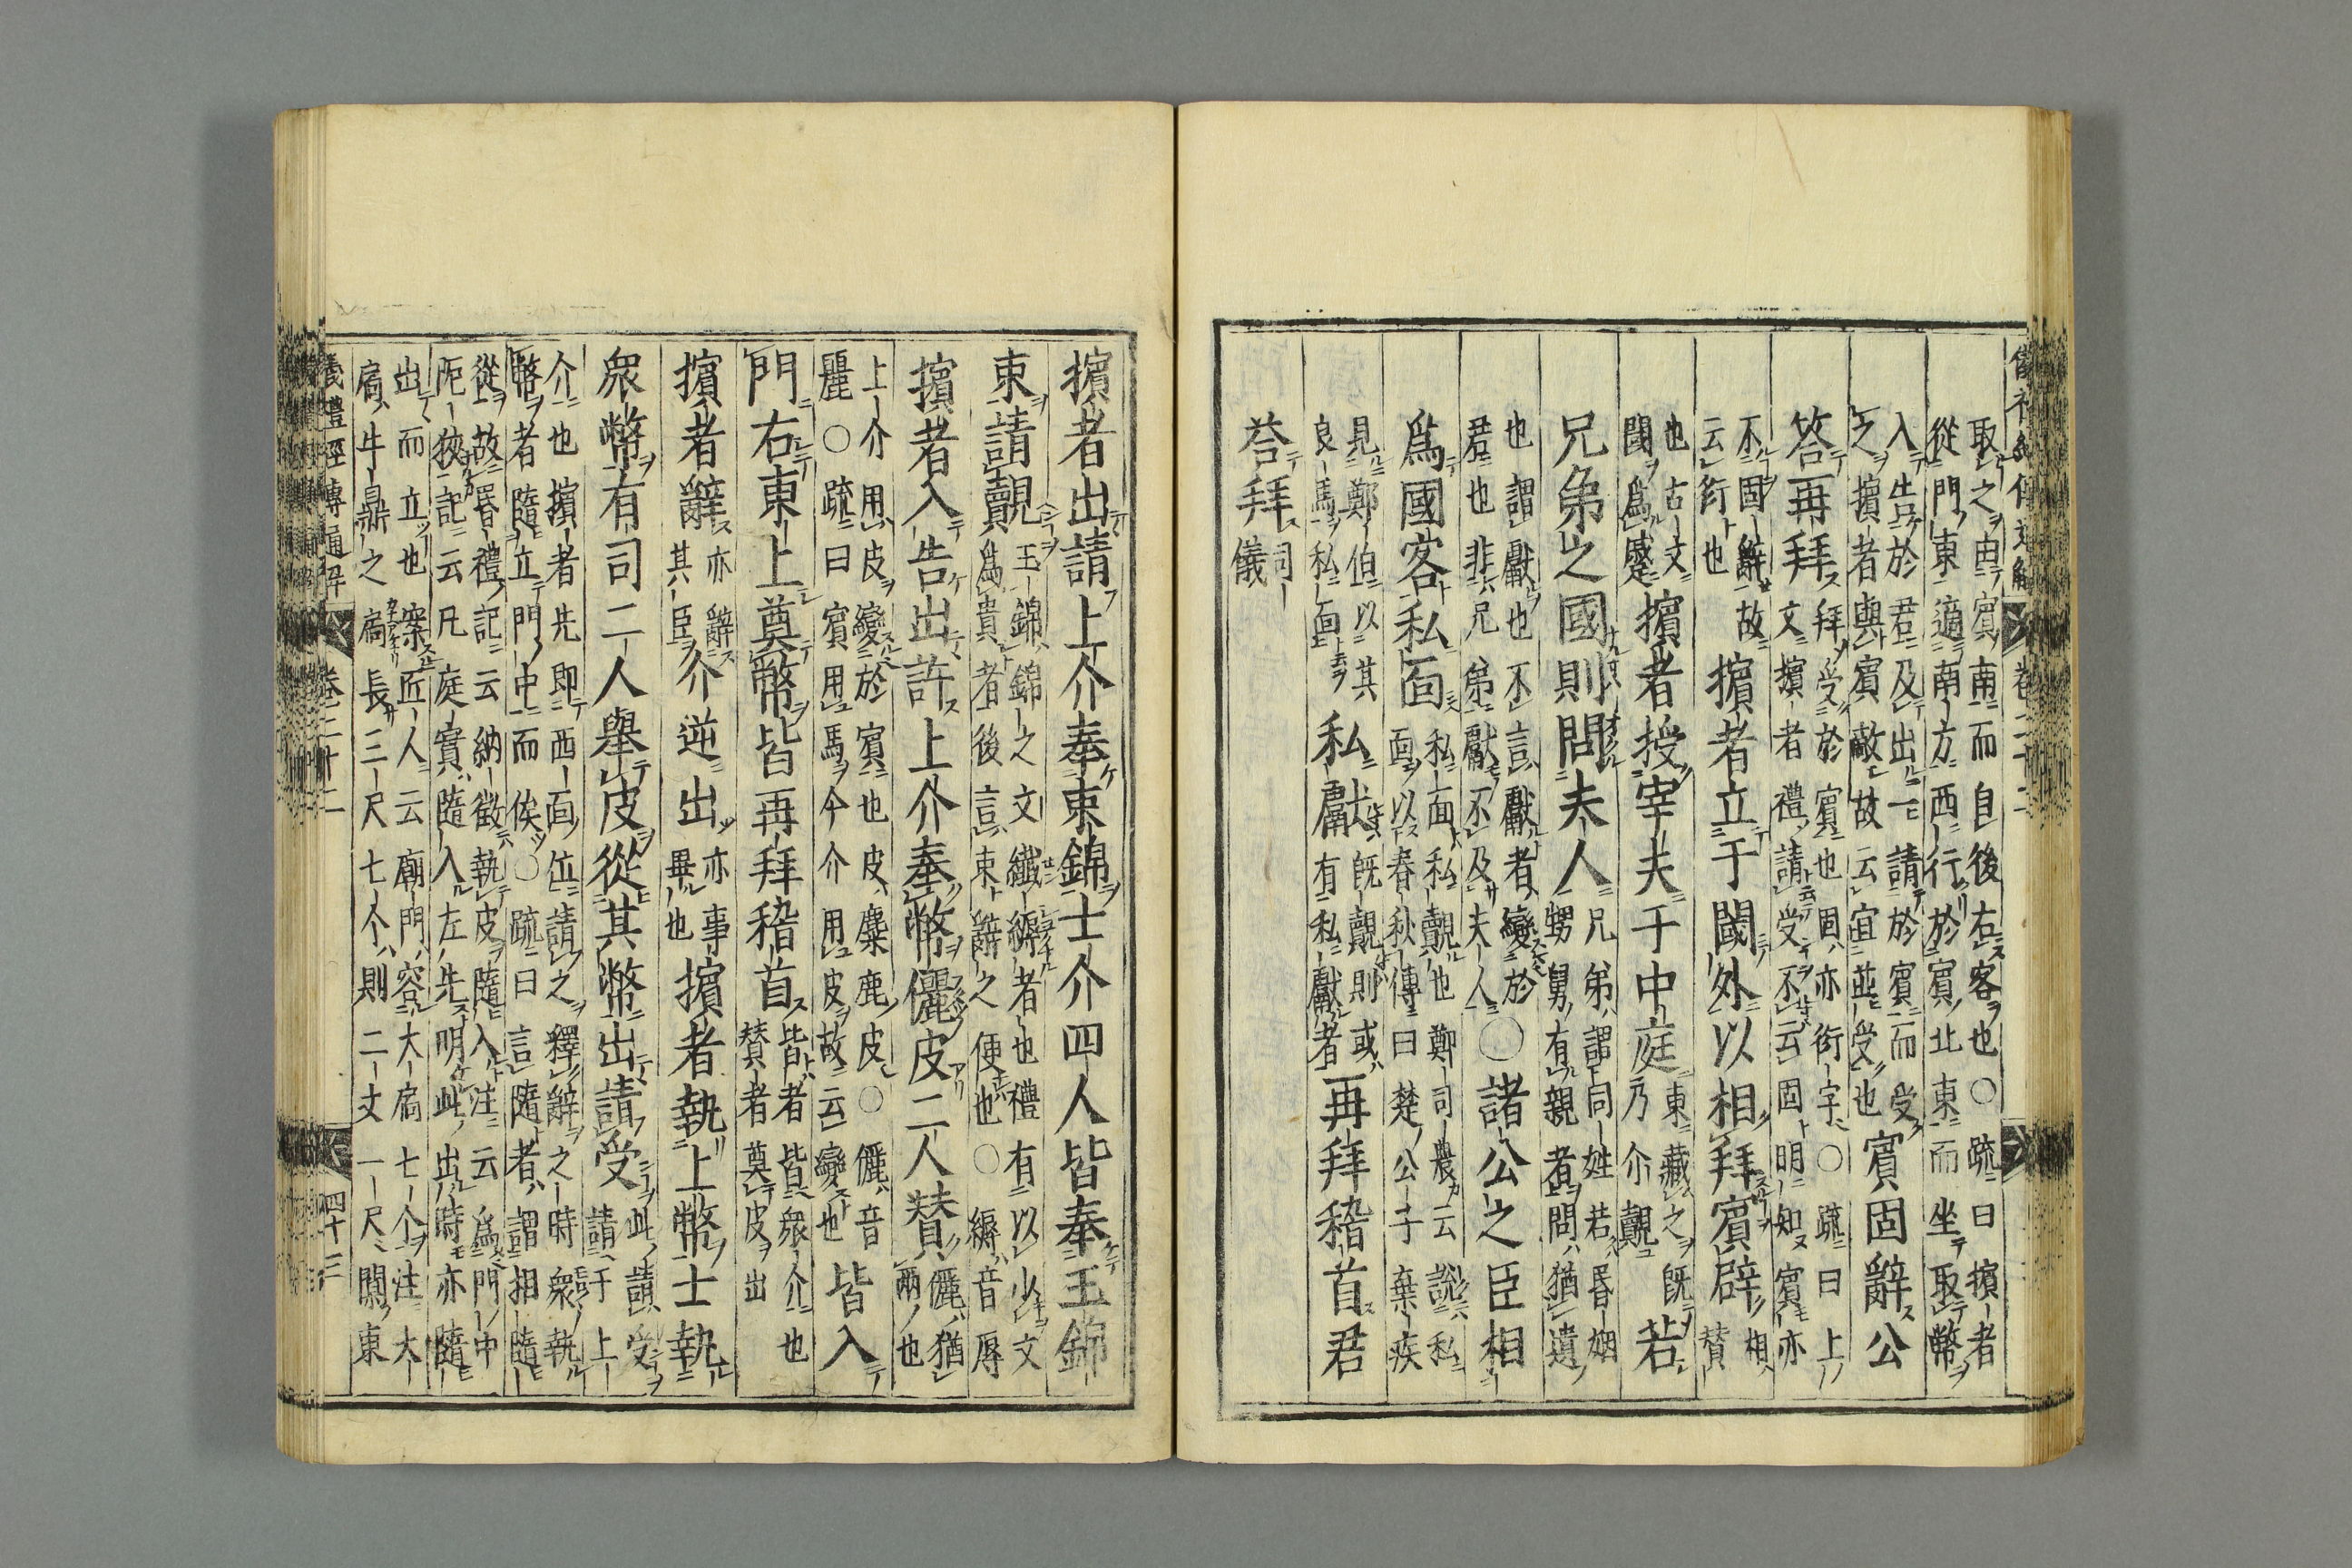 儀禮經傳通解 卷二十二
取之由賓南而自後右客也○疏曰擯者
從門東適南方西行於賓北東而坐取幣
入告於君及出一請於賓而受
之擯者與賓敵故云宜並受也賓固辭公
答再拜拜受於賓也固亦衍字○疏曰上
文擯者禮請受不云固明知賓亦
不固辭故
云衍也擯者立于閾外以相拜賓辟相
贊
也古文
閾爲蹙擯者授宰夫于中庭東藏之既
乃介覿若
兄弟之國則問夫人兄弟謂同姓若昏姻
甥舅有親者問猶遺
也謂獻也不言獻者變於
君也非兄弟獻不及夫人○諸公之臣相
爲國客私面私面私覿也鄭司農云説私
面以春秋傳曰楚公子棄疾
見鄭伯以其
良馬私面私獻既覿則或
有私獻者再拜稽首君
答拜司
儀
擯者出請上介奉束錦士介四人皆奉玉錦
束請覿玉錦錦之文纖縟者也禮有以少文
爲貴者後言束辭之便也○縟音辱
擯者入告出許上介奉幣儷皮二人贊儷猶
兩也
上介用皮變於賓也皮麋鹿皮○儷音
麗○疏曰賓用馬今介用皮故云變也皆入
門右東上奠幣皆再拜稽首皆者皆衆介也
贊者奠皮出
擯者辭亦辭
其臣介逆出亦事
畢也擯者執上幣士執
衆幣有司二人舉皮從其幣出請受此請受
請于上
介也擯者先即西面位請之釋辭之時衆執
幣者隨立門中而俟○疏曰言隨者謂相隨
從故昏禮記云納徵執皮隨入注云爲門中
阨狹記云凡庭實隨入左先明此出時亦隨
出而立也案匠人云廟門容大扃七个注大
扃牛鼎之扃長三尺七个則二丈一尺闑東
儀禮經傳通解 卷二十二 四十三